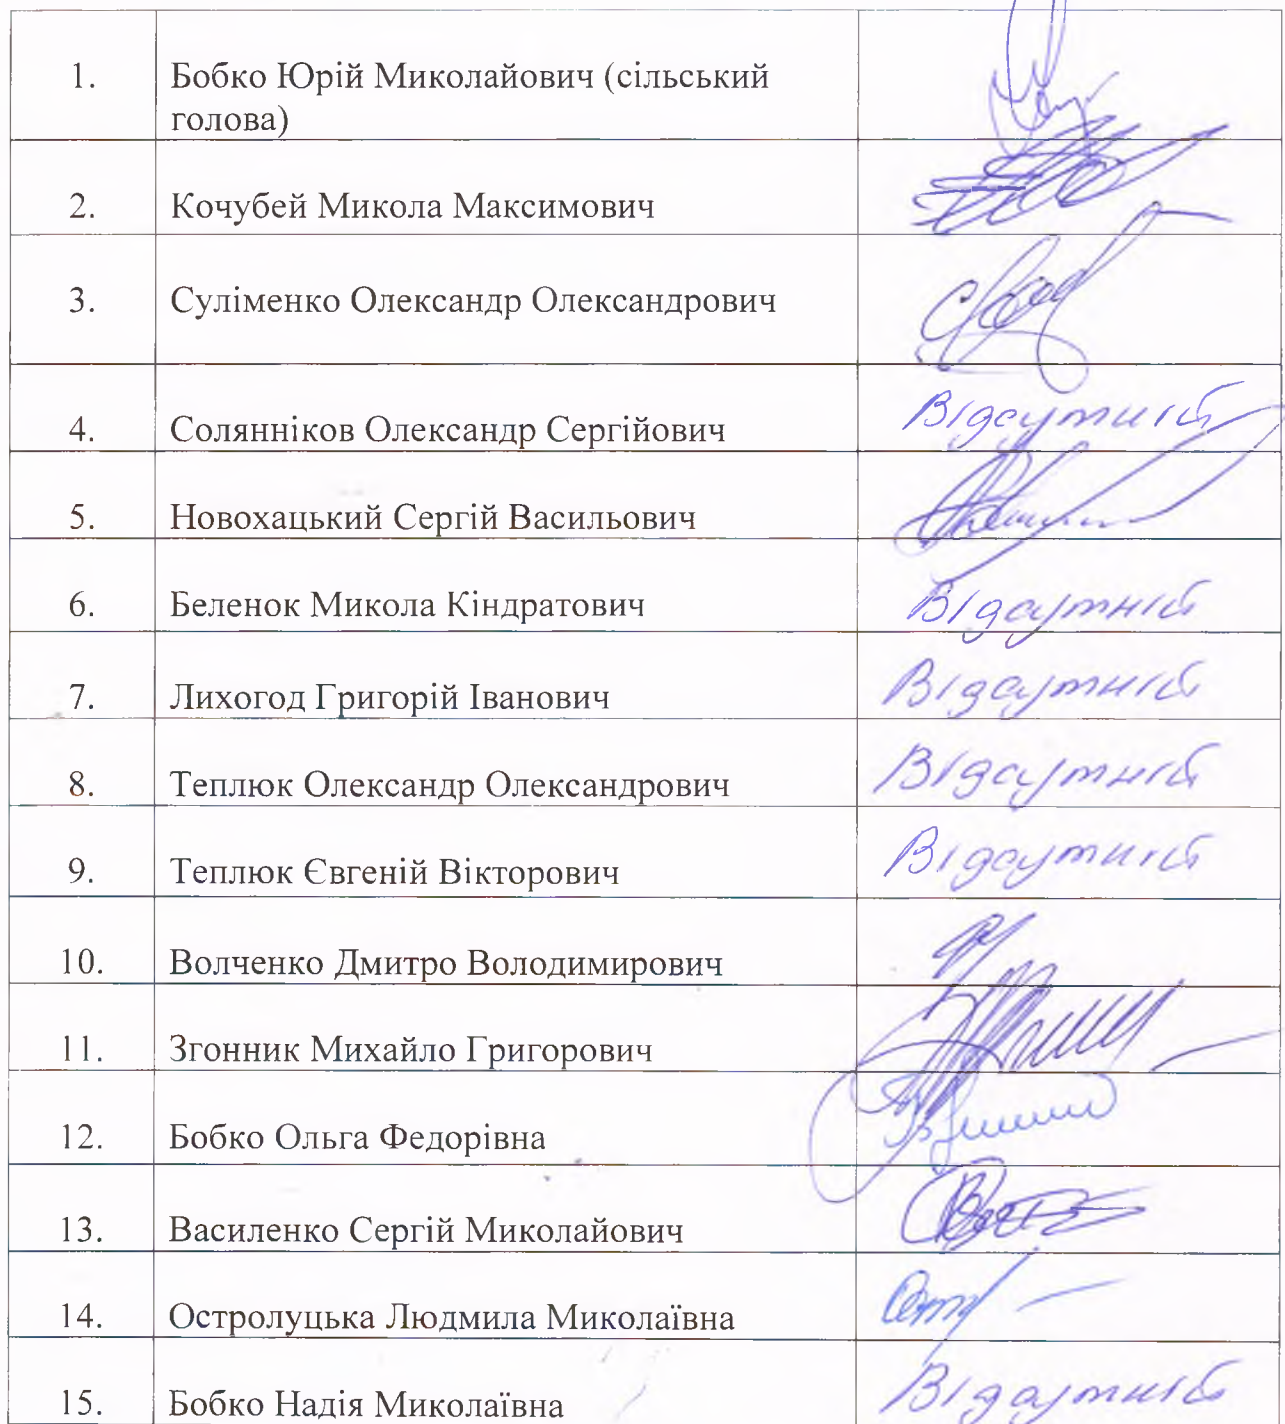 1. Бобко Юрій Миколайович (сільський
голова)
2. Кочубей Микола Максимович
3. Суліменко Олександр Олександрович
4. Солянніков Олександр Сергійович Відсутній
5. Новохацький Сергій Васильович
6. Беленок Микола Кіндратович Відсутній
7. Лихогод Григорій Іванович Відсутній
8. Теплюк Олександр Олександрович Відсутній
9. Теплюк Євгеній Вікторович Відсутній
10. Волченко Дмитро Володимирович
11. Згонник Михайло Григорович
12. Бобко Ольга Федорівна
13. Василенко Сергій Миколайович
14. Остролуцька Людмила Миколаївна
15. Бобко Надія Миколаївна Відсутній